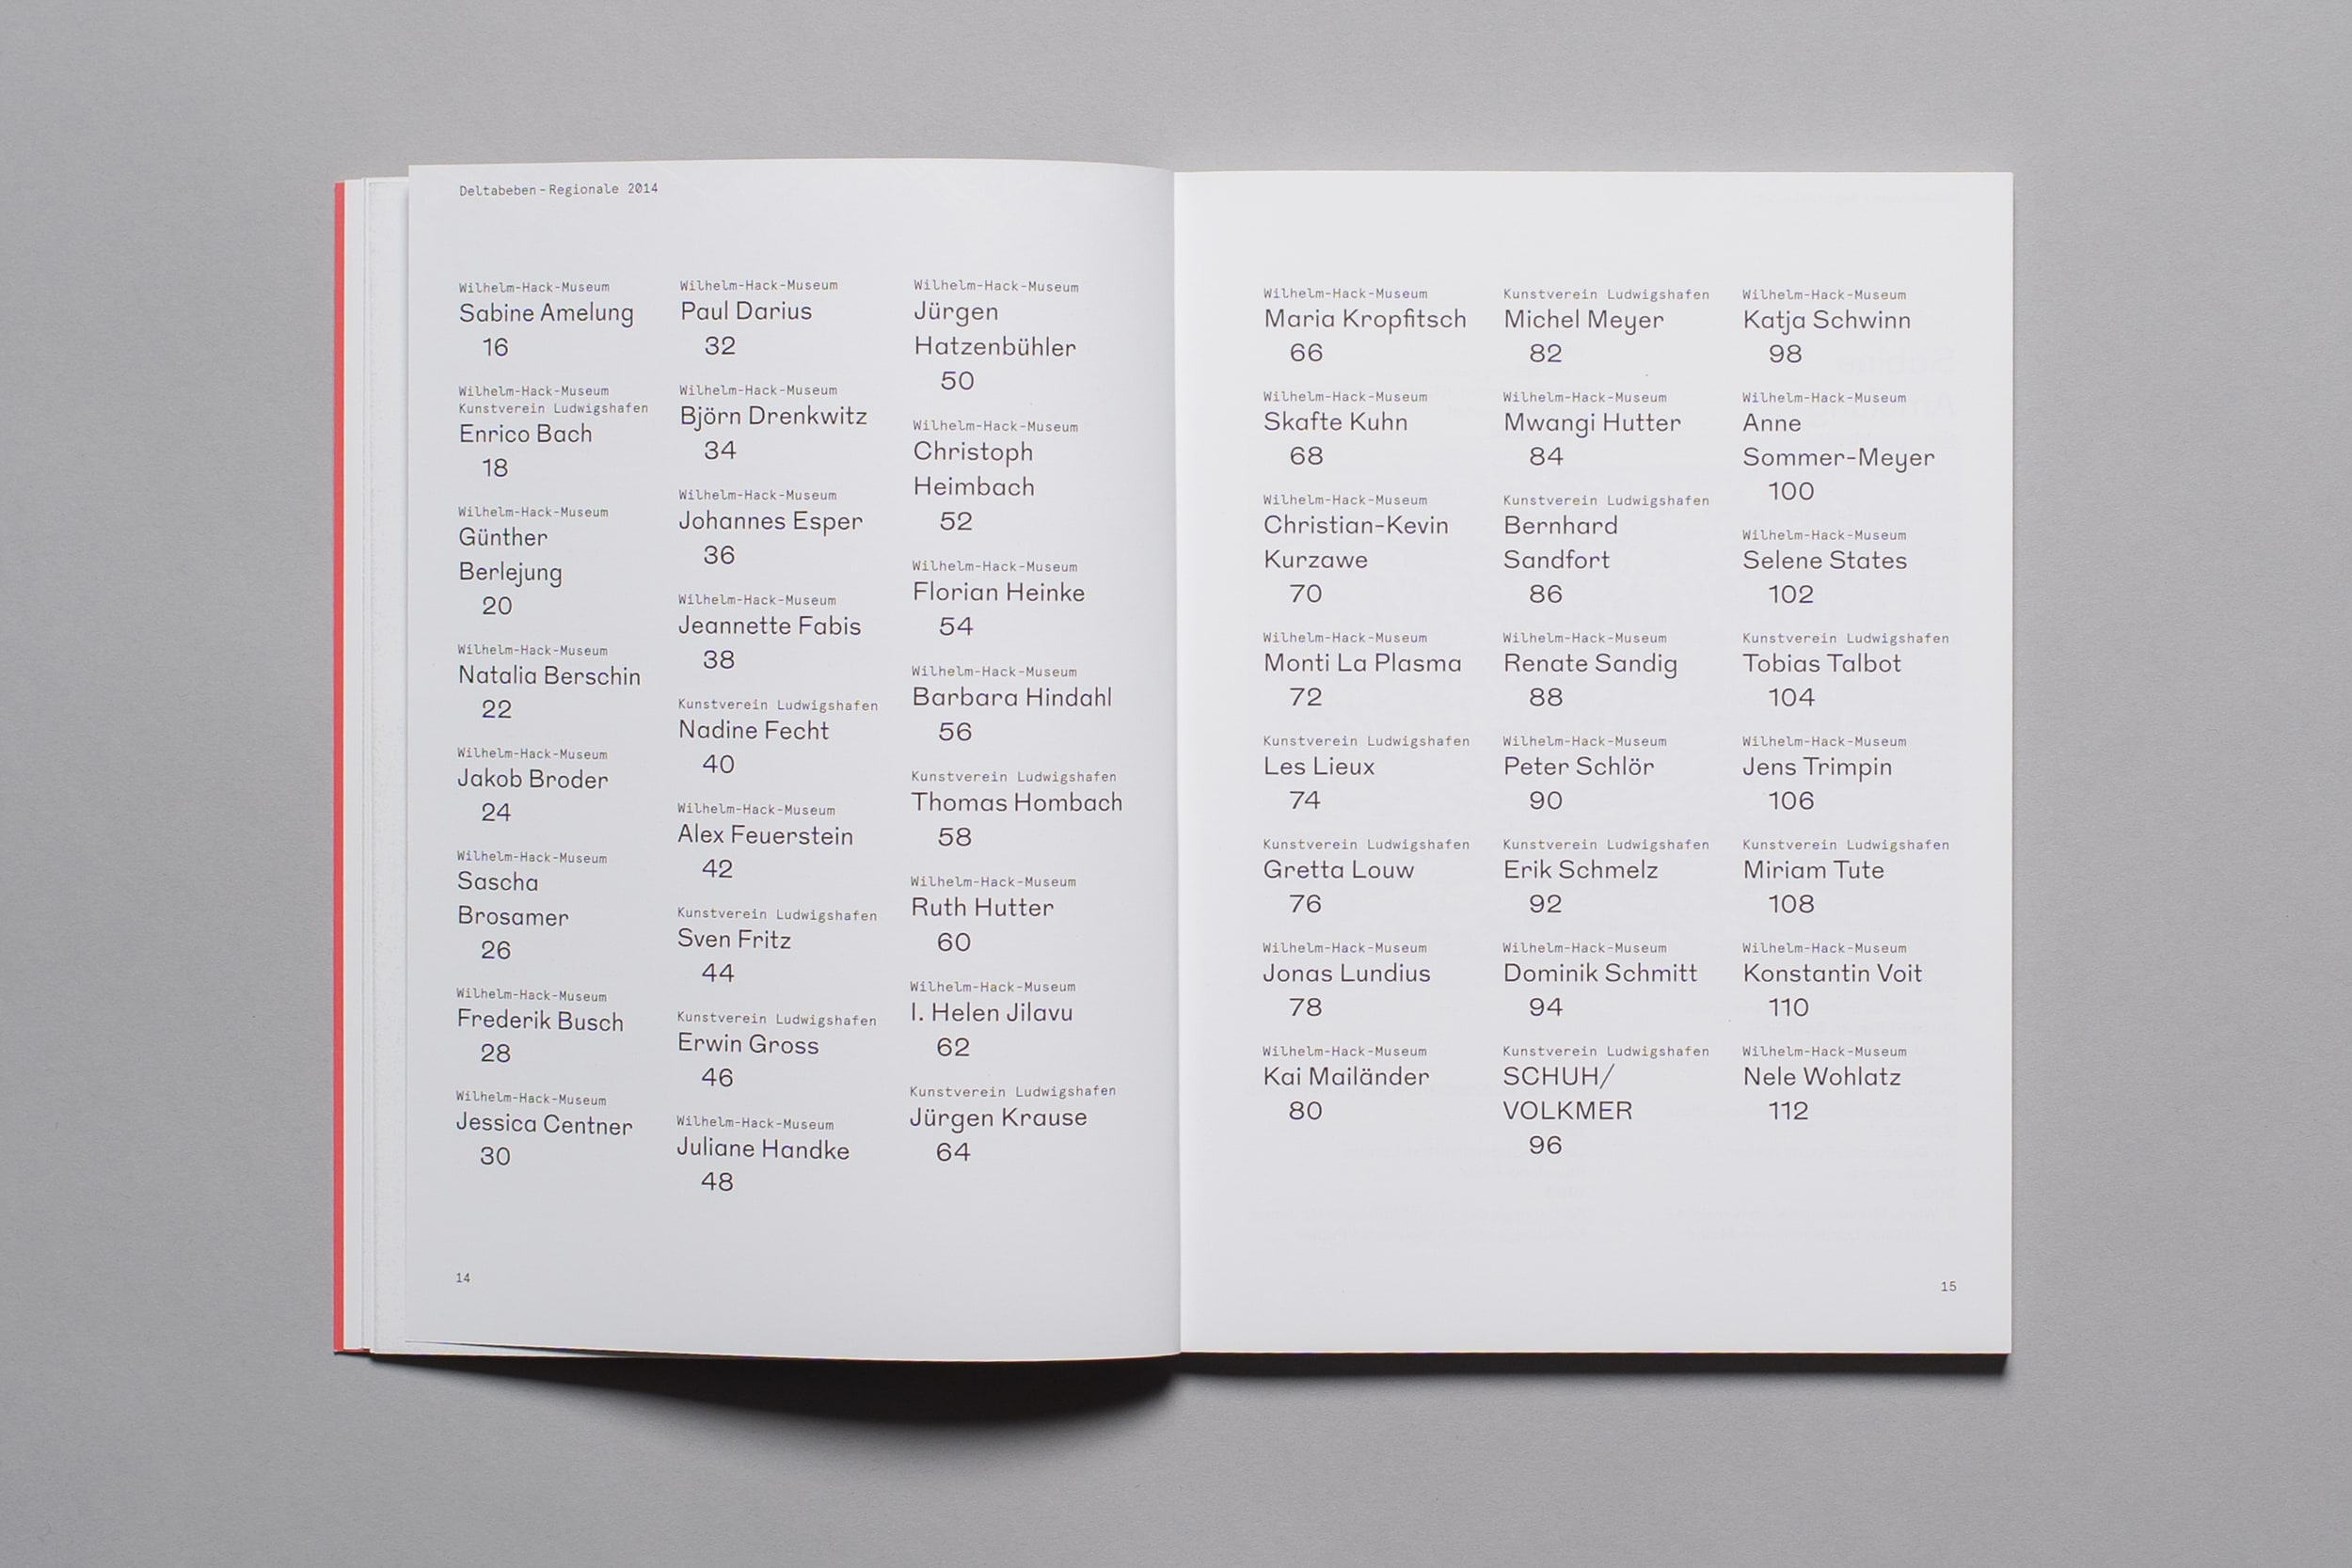 Deltabeben – Regionale 2014
Wilhelm-Hack-Museum
Sabine Amelung
16
Wilhelm-Hack-Museum
Kunstverein Ludwigshafen
Enrico Bach
18
Wilhelm-Hack-Museum
Günther
Berlejung
20
Wilhelm-Hack-Museum
Natalia Berschin
22
Wilhelm-Hack-Museum
Jakob Broder
24
Wilhelm-Hack-Museum
Sascha
Brosamer
26
Wilhelm-Hack-Museum
Frederik Busch
28
Wilhelm-Hack-Museum
Jessica Centner
30
Wilhelm-Hack-Museum
Paul Darius
32
Wilhelm-Hack-Museum
Björn Drenkwitz
34
Wilhelm-Hack-Museum
Johannes Esper
36
Wilhelm-Hack-Museum
Jeannette Fabis
38
Kunstverein Ludwigshafen
Nadine Fecht
40
Wilhelm-Hack-Museum
Alex Feuerstein
42
Kunstverein Ludwigshafen
Sven Fritz
44
Kunstverein Ludwigshafen
Erwin Gross
46
Wilhelm-Hack-Museum
Juliane Handke
48
Wilhelm-Hack-Museum
Jürgen
Hatzenbühler
50
Wilhelm-Hack-Museum
Christoph
Heimbach
52
Wilhelm-Hack-Museum
Florian Heinke
54
Wilhelm-Hack-Museum
Barbara Hindahl
56
Kunstverein Ludwigshafen
Thomas Hombach
58
Wilhelm-Hack-Museum
Ruth Hutter
60
Wilhelm-Hack-Museum
I. Helen Jilavu
62
Kunstverein Ludwigshafen
Jürgen Krause
64
14
Wilhelm-Hack-Museum
Maria Kropfitsch
66
Wilhelm-Hack-Museum
Skafte Kuhn
68
Wilhelm-Hack-Museum
Christian-Kevin
Kurzawe
70
Wilhelm-Hack-Museum
Monti La Plasma
72
Kunstverein Ludwigshafen
Les Lieux
74
Kunstverein Ludwigshafen
Gretta Louw
76
Wilhelm-Hack-Museum
Jonas Lundius
78
Wilhelm-Hack-Museum
Kai Mailänder
80
Kunstverein Ludwigshafen
Michel Meyer
82
Wilhelm-Hack-Museum
Mwangi Hutter
84
Kunstverein Ludwigshafen
Bernhard
Sandfort
86
Wilhelm-Hack-Museum
Renate Sandig
88
Wilhelm-Hack-Museum
Peter Schlör
90
Kunstverein Ludwigshafen
Erik Schmelz
92
Wilhelm-Hack-Museum
Dominik Schmitt
94
Kunstverein Ludwigshafen
SCHUH/
VOLKMER
96
Wilhelm-Hack-Museum
Katja Schwinn
98
Wilhelm-Hack-Museum
Anne
Sommer-Meyer
100
Wilhelm-Hack-Museum
Selene States
102
Kunstverein Ludwigshafen
Tobias Talbot
104
Wilhelm-Hack-Museum
Jens Trimpin
106
Kunstverein Ludwigshafen
Miriam Tute
108
Wilhelm-Hack-Museum
Konstantin Voit
110
Wilhelm-Hack-Museum
Nele Wohlatz
112
15